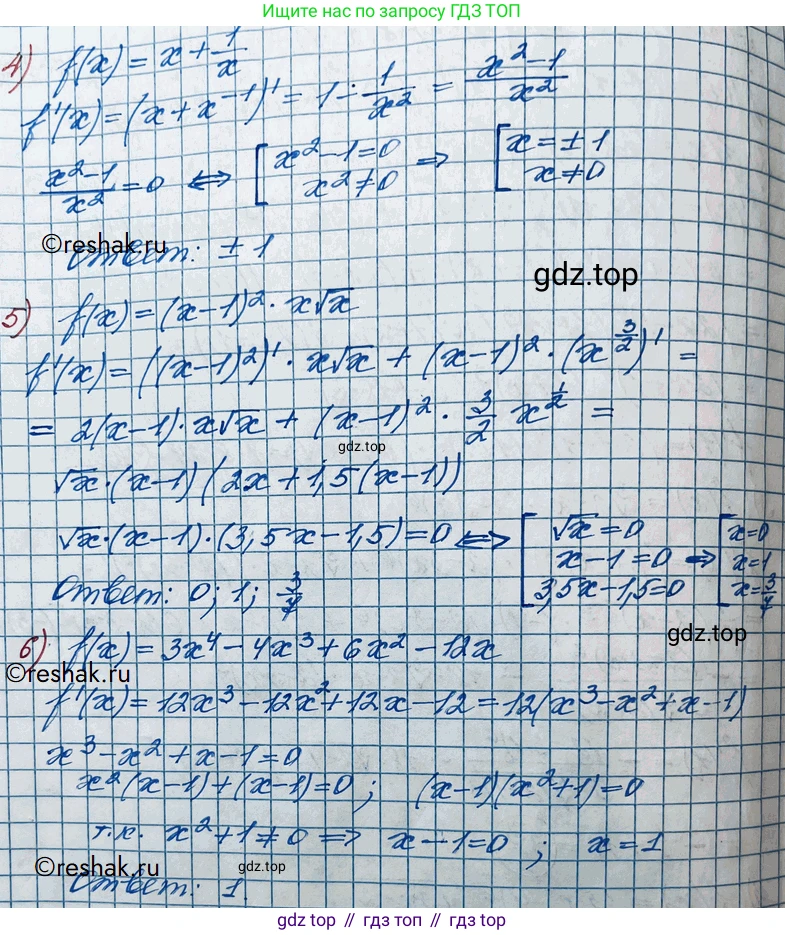 Ищите нас по запросу ГДЗ ТОП
4) f(x) = x + 1/x
f'(x) = (x + x^{-1})' = 1 - 1/x² = (x² - 1)/x²
(x² - 1)/x² = 0 ⇔ [ x² - 1 = 0 ⇒ [ x = ± 1
x² ≠ 0 x ≠ 0
©reshak.ru
Ответ: ± 1
gdz.top
5) f(x) = (x-1)² · x√x
f'(x) = ((x-1)²)' · x√x + (x-1)² · (x^{3/2})' =
= 2(x-1) · x√x + (x-1)² · 3/2 x^{1/2} =
gdz.top
√x · (x-1) (2x + 1,5(x-1))
√x · (x-1) · (3,5x - 1,5) = 0 ⇔ [ √x = 0 ⇒ [ x = 0
x - 1 = 0 x = 1
3,5x - 1,5 = 0 x = 3/7
Ответ: 0; 1; 3/7
gdz.top
6) f(x) = 3x⁴ - 4x³ + 6x² - 12x
©reshak.ru
f'(x) = 12x³ - 12x² + 12x - 12 = 12(x³ - x² + x - 1)
x³ - x² + x - 1 = 0
x²(x-1) + (x-1) = 0; (x-1)(x²+1) = 0
т.к. x² + 1 ≠ 0 ⇒ x - 1 = 0; x = 1
©reshak.ru
gdz.top
Ответ: 1.
gdz top // гдз топ // gdz.top